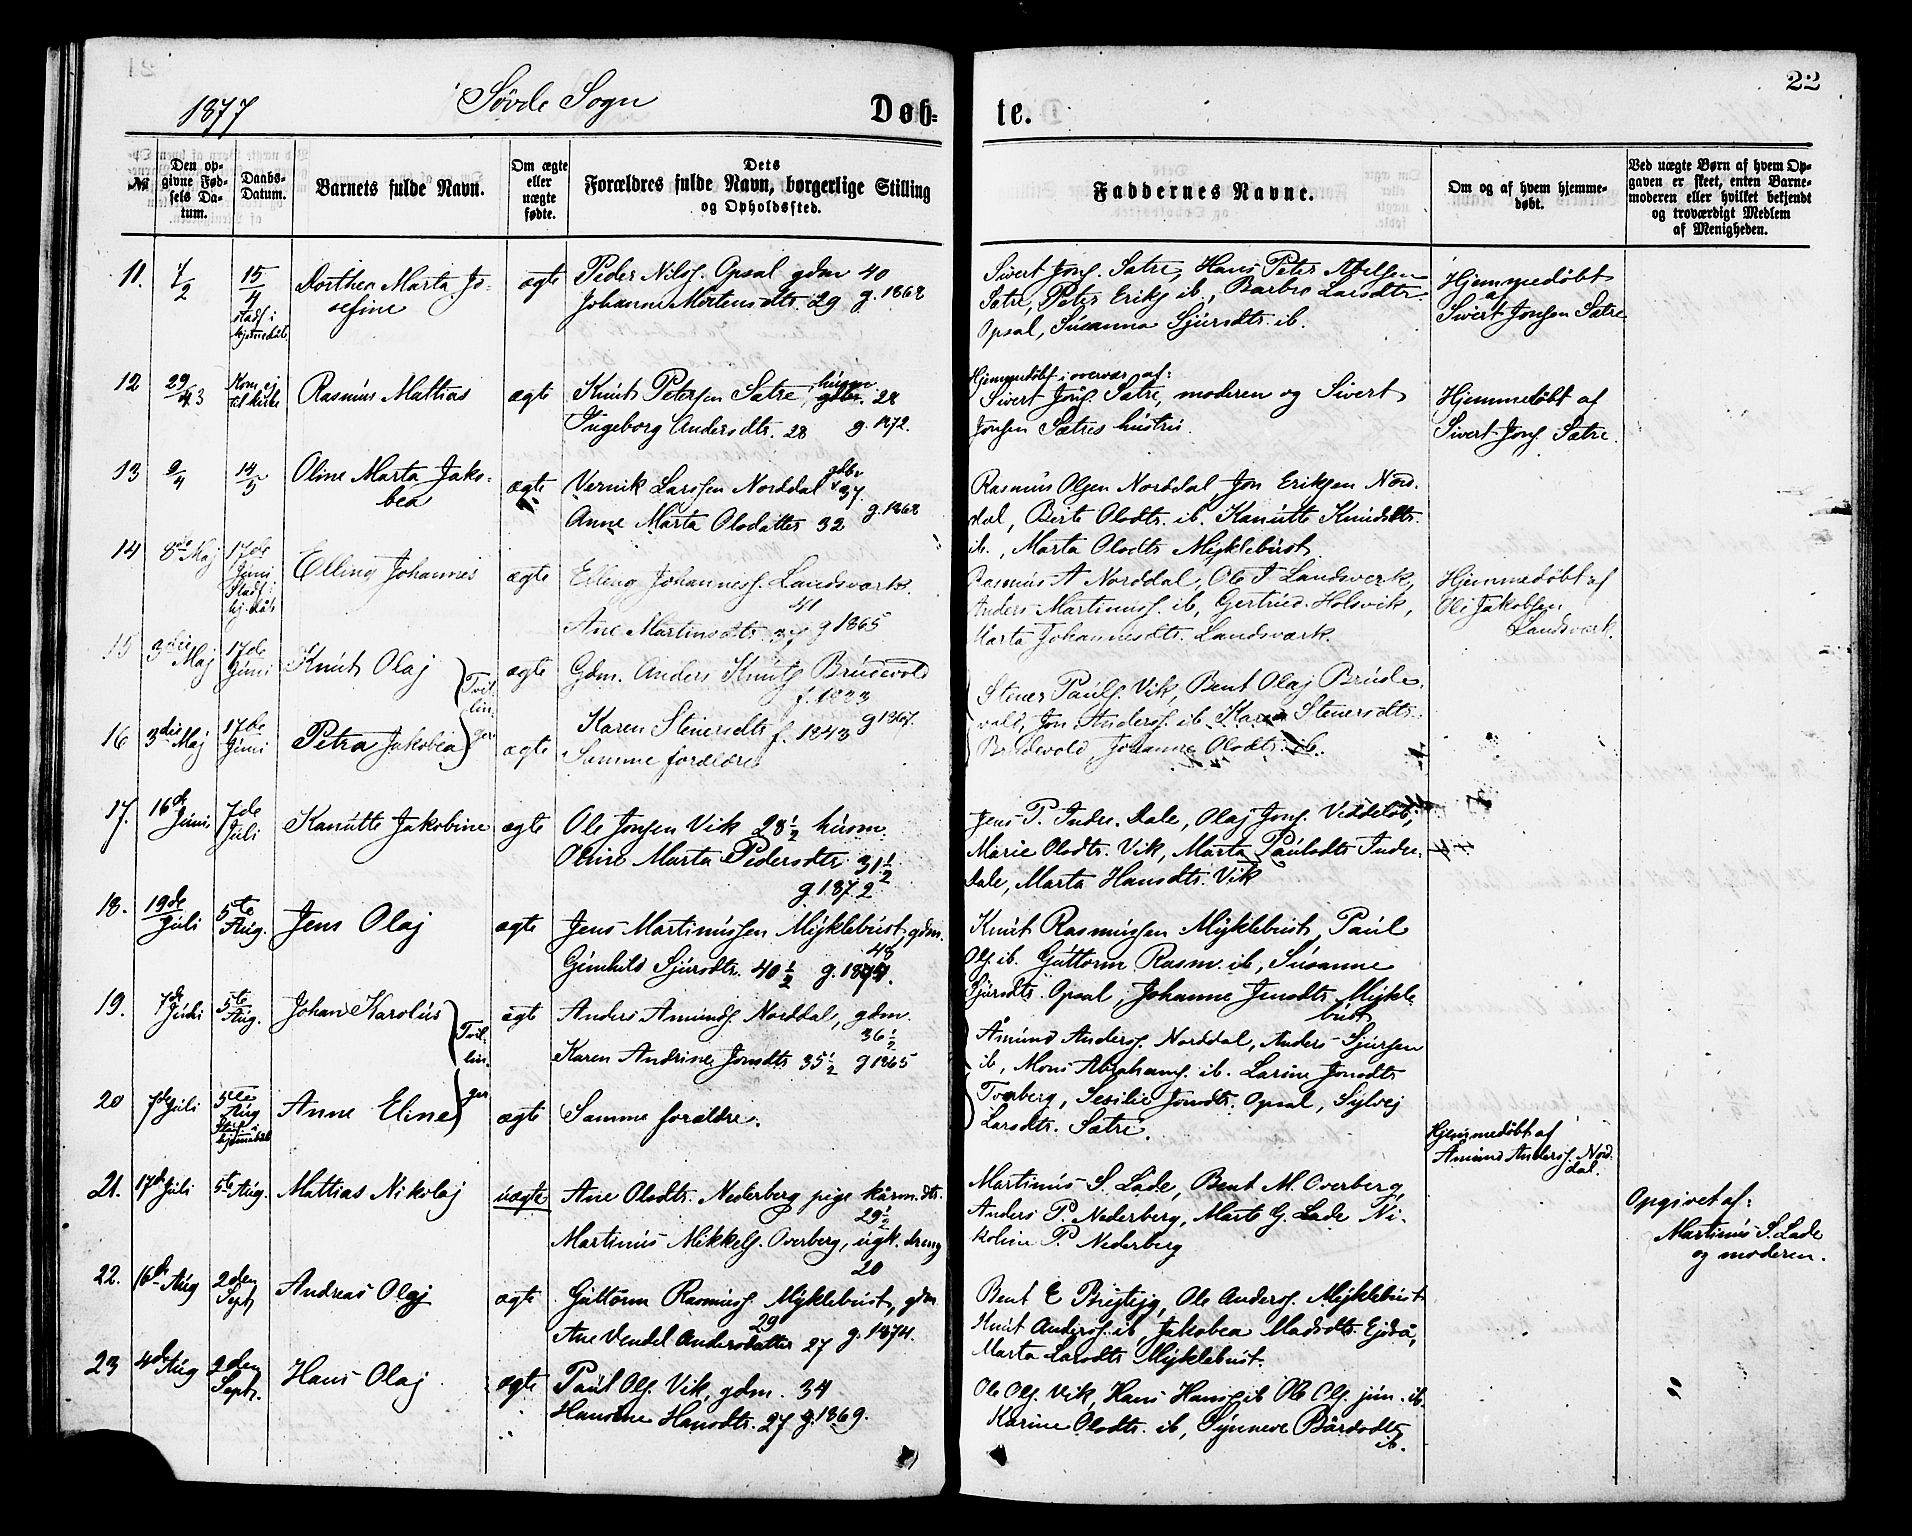 22
1877
Søvde Sogn
Døb-
te.
№
Den op-
givne Fød-
sels Da-
tum.
Daabs-
Datum.
Barnets fulde Navn.
Om ægte
eller
uægte
fødte.
Dets
Forældres fulde Navn, borgerlige Stilling
og Opholdssted.
Faddernes Navne.
Om og af hvem hjemme-
døbt.
Ved uægte Børn af hvem Op-
gaven er skeet, enten Barne-
moderen eller hvilket bekjendt
og troværdigt Medlem
af Menigheden.
11. 7/2 15/4 stadf i hjemmedåb Dorthea Marta Jo-
sefine
ægte
Peder Nilss. Opsal gdm 40
Johanne Mortensdtr. 29 g. 1868
Sivert Jons. Sætre, Hans Peter
Sætre, Peter Eriks ib., Barbro Larsdtr.
Opsal, Susanna Sjursdtr. ib.
Hjemmedøbt
af
Sivert Jonsen Sætre
12 29/3 Kom ej til kirke Rasmus Mattias
ægte
Knut Petersen Sætre, husm. 28
Ingeborg Andersdtr. 28 g. 1872.
Hjemmedøbt i overvær af:
Sivert Jons Sætre, moderen og Sivert
Jonsen Sætres hustru.
Hjemmedøbt af
Sivert Jons. Sætre.
13 9/4 14/5 Oline Marta Jako-
bea
ægte
Vernik Larssen Norddal gdbr 37.
Anne Marta Olsdatter 32 g. 1868
Rasmus Olsen Norddal, Jon Eriksen Nord-
dal, Berte Olsdtr. ib. Kanutte Knudsdtr.
ib., Marta Olsdtr Myklebust.
14 8de Maj 17de Juni Stadf i hj.dåb Elling Johannes
ægte
Elling Johanness. Landsværk
41
Ane Martinsdtr 37 g 1865
Rasmus A Norddal, Ole J Landsverk,
Anders Martinuss. ib, Gertrud Holsvik,
Marta Johannesdtr. Landsværk.
Hjemmedøbt af
Ole Jakobsen
Landsverk.
15 3die Maj 17de Juni Knut Olaj
Tvil-
lin-
ger
ægte
Gdm. Anders Knuts Brudevold
f. 1833
Karen Steinersdtr f. 1843 g 1867.
Stener Pauls. Vik, Bent Olaj Brude-
vold, Jon Anders. ib Karen Stenersdtr.
Brudevold, Johanne Olsdtr. ib.
16 3die Maj 17de Juni Petra Jakobea
ægte
Samme forældre
17. 16de Juni 7de Juli Kanutte Jakobine
ægte
Ole Jonsen Vik 28½ husm.
Oline Marta Pedersdtr 31½
g 1872
Jens P. Indre-Dale, Olaj Jons. Viddeløb,
Marie Olsdtr. Vik, Marta Paulsdtr Indre-
Dale, Marta Hansdtr. Vik
18. 19de Juli 5te Aug. Jens Olaj
ægte
Jens Martinussen Myklebust gdm.
48
Gunhild Sjursdtr. 40½
Knut Rasmussen Myklebust, Paul
Ols. ib. Guttorm Rasm. ib, Susanne
Sjursdtr. Opsal, Johanne Jensdtr. Mykle-
bust
19. 7de Juli 5te Aug. Johan Karolus
Tvil-
lin-
ger
ægte
Anders Amunds. Norddal, gdm.
36½
Karen Andrine Jonsdtr 35½ g 1865
Amund Anders. Norddal, Anders Sjursen
ib, Mons Abrahams. ib. Larine Jonsdtr
Tverberg, Sesilie Jonsdtr. Opsal, Sylvej
Larsdtr. Sætre.
20 7de Juli 5te Aug Stadf i hjemmedåb Anne Eline
ægte
Samme forældre.
Hjemmedøbt af
Amund Anders. Nord-
dal.
21. 17de Juli 5te Aug. Mattias Nikolaj
uægte
Ane Olsdtr. Nederberg pige kårm. dtr.
29½
Martinus Mikkels. Overberg, ugk. dreng
20
Martinus S. Lade, Bent M. Overberg,
Anders P. Nederberg, Marte G. Lade Ni-
koline P. Nederberg
Opgivet af:
Martinus S. Lade
og moderen.
22. 16de Aug 2den Sept Andreas Olaj
ægte
Guttorm Rasmuss. Myklebust, gdm
29
Ane Vendel Andersdatter 27 g. 1874.
Bent E Brejtejg, Ole Anders. Myklebust
Knut Anders. ib, Jakobea Madsdtr. Ejdså,
Marta Larsdtr Myklebust.
23 4de Aug 2den Sept. Hans Olaj
ægte
Paul Ols. Vik, gdm. 34
Hansine Hansdtr. 27 g. 1869.
Ole Ols. Vik, Hans Hans. ib Ole Ols. jun. ib.
Karine Olsdtr. ib, Synneve Bårdsdtr
ib.